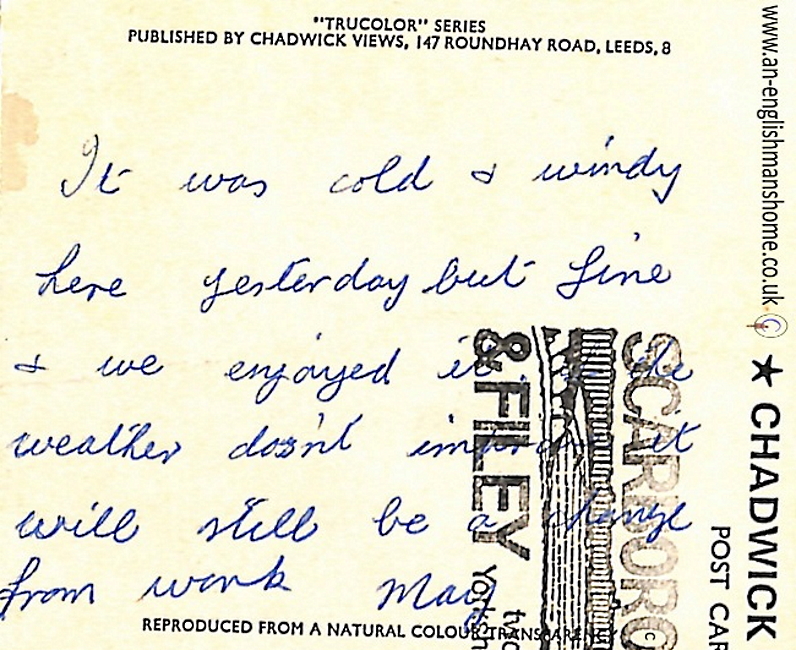 "TRUCOLOR" SERIES
PUBLISHED BY CHADWICK VIEWS, 147 ROUNDHAY ROAD, LEEDS, 8
It was cold & windy
here yesterday but fine
& we enjoyed it. the
weather dosn't improve it
will still be a change
from work May
REPRODUCED FROM A NATURAL COLOUR TRANSPARENCY
SCARBORO
& FILEY
www.an-englishmanshome.co.uk ©
★ CHADWICK
POST CAR